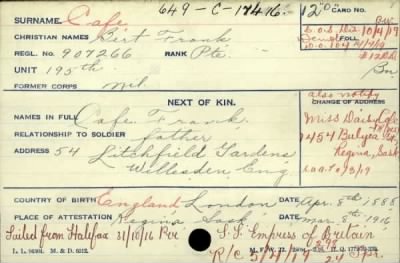 649-C-17476
SURNAME. Cafe. CARD NO.
CHRISTIAN NAMES Bert Frank
REGL. NO. 907266 RANK Pte. FOLL.
UNIT 195th
FORMER CORPS nil
NEXT OF KIN. also notify
CHANGE OF ADDRESS
NAMES IN FULL Cafe Frank. Miss Daisy Cafe
RELATIONSHIP TO SOLDIER father
ADDRESS 54 Litchfield Gardens 1454
Willesden, Eng Regina, Sask
COUNTRY OF BIRTH England London DATE Apr. 8th 1888
PLACE OF ATTESTATION Regina Sask DATE Mar. 8th 1916
Sailed from Halifax 31/10/16 Per S.S. Empress of Britain
L. L. M. & D. 6312. M. F. W. 22.
R/C 5/4/19